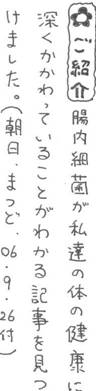 ✿ご紹介 腸内細菌が私達の体の健康に
深くかかわっていることがわかる記事を見つ
けました。(朝日・まつど、06・9・26付)